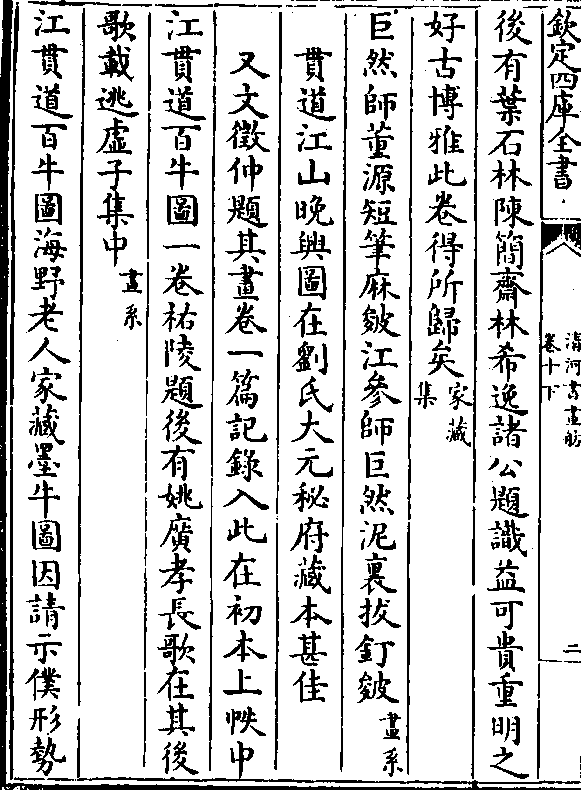 欽定四庫全書
清河書畫舫
卷十下
二
後有葉石林陳簡齋林希逸諸公題識益可貴重明之
好古博雅此卷得所歸矣家藏集
巨然師董源短筆麻皴江參師巨然泥裏拔釘皴畫系
貫道江山晚興圖在劉氏大元秘府藏本甚佳
又文徵仲題其畫卷一篇記錄入此在初本上帙中
江貫道百牛圖一卷祐陵題後有姚廣孝長歌在其後
歌載逃虛子集中畫系
江貫道百牛圖海野老人家藏墨牛圖因請示僕形勢